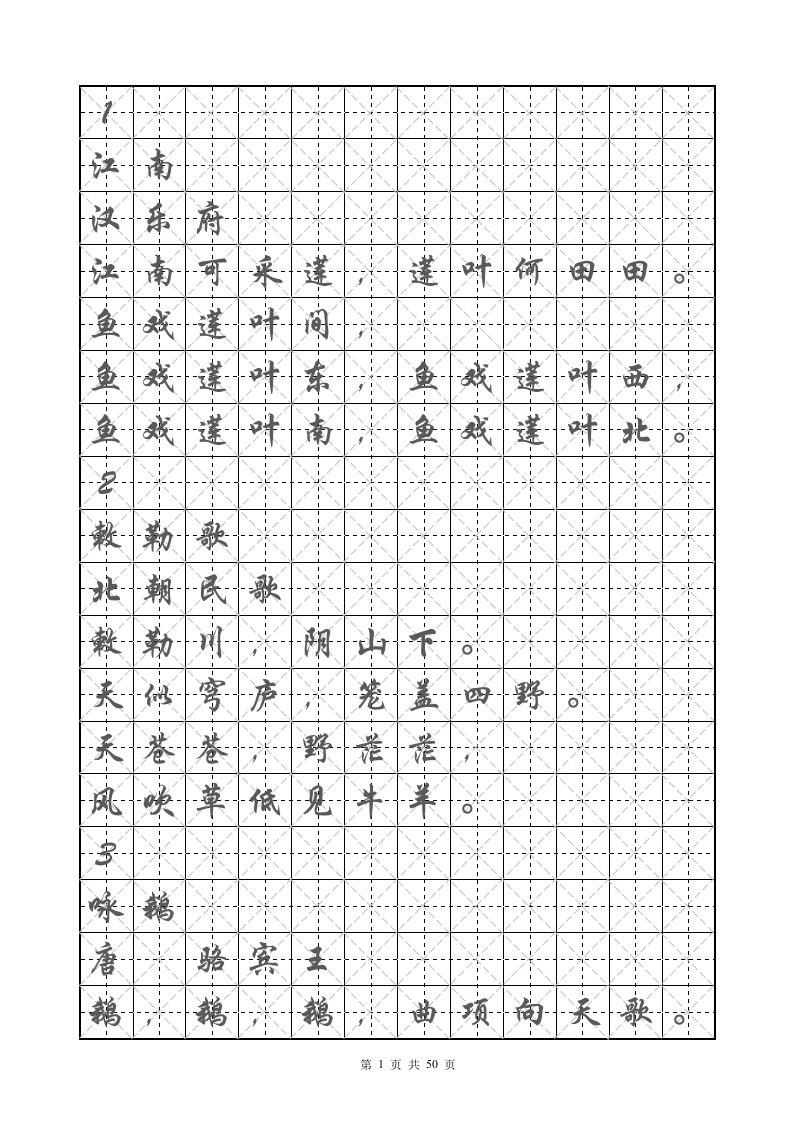 1
江南
汉乐府
江南可采莲，莲叶何田田。
鱼戏莲叶间，
鱼戏莲叶东，鱼戏莲叶西，
鱼戏莲叶南，鱼戏莲叶北。
2
敕勒歌
北朝民歌
敕勒川，阴山下。
天似穹庐，笼盖四野。
天苍苍，野茫茫，
风吹草低见牛羊。
3
咏鹅
唐 骆宾王
鹅，鹅，鹅，曲项向天歌。
第 1 页 共 50 页